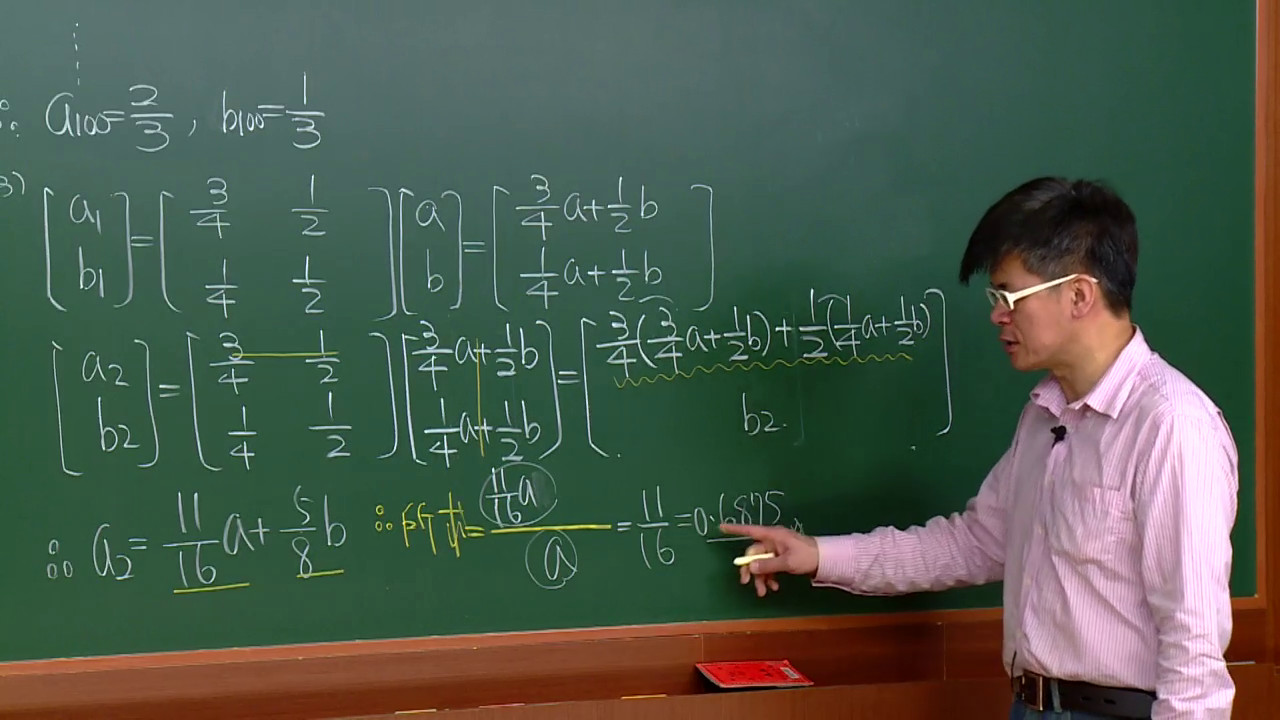 ∴ a₁₀₀ = 2/3 , b₁₀₀ = 1/3
3) [a₁ ; b₁] = [3/4 1/2 ; 1/4 1/2] [a ; b] = [3/4 a + 1/2 b ; 1/4 a + 1/2 b]
[a₂ ; b₂] = [3/4 1/2 ; 1/4 1/2] [3/4 a + 1/2 b ; 1/4 a + 1/2 b] = [3/4 (3/4 a + 1/2 b) + 1/2 (1/4 a + 1/2 b) ; b₂]
∴ a₂ = 11/16 a + 5/8 b ∴ 所求 = (11/16 a)/a = 11/16 = 0.6875